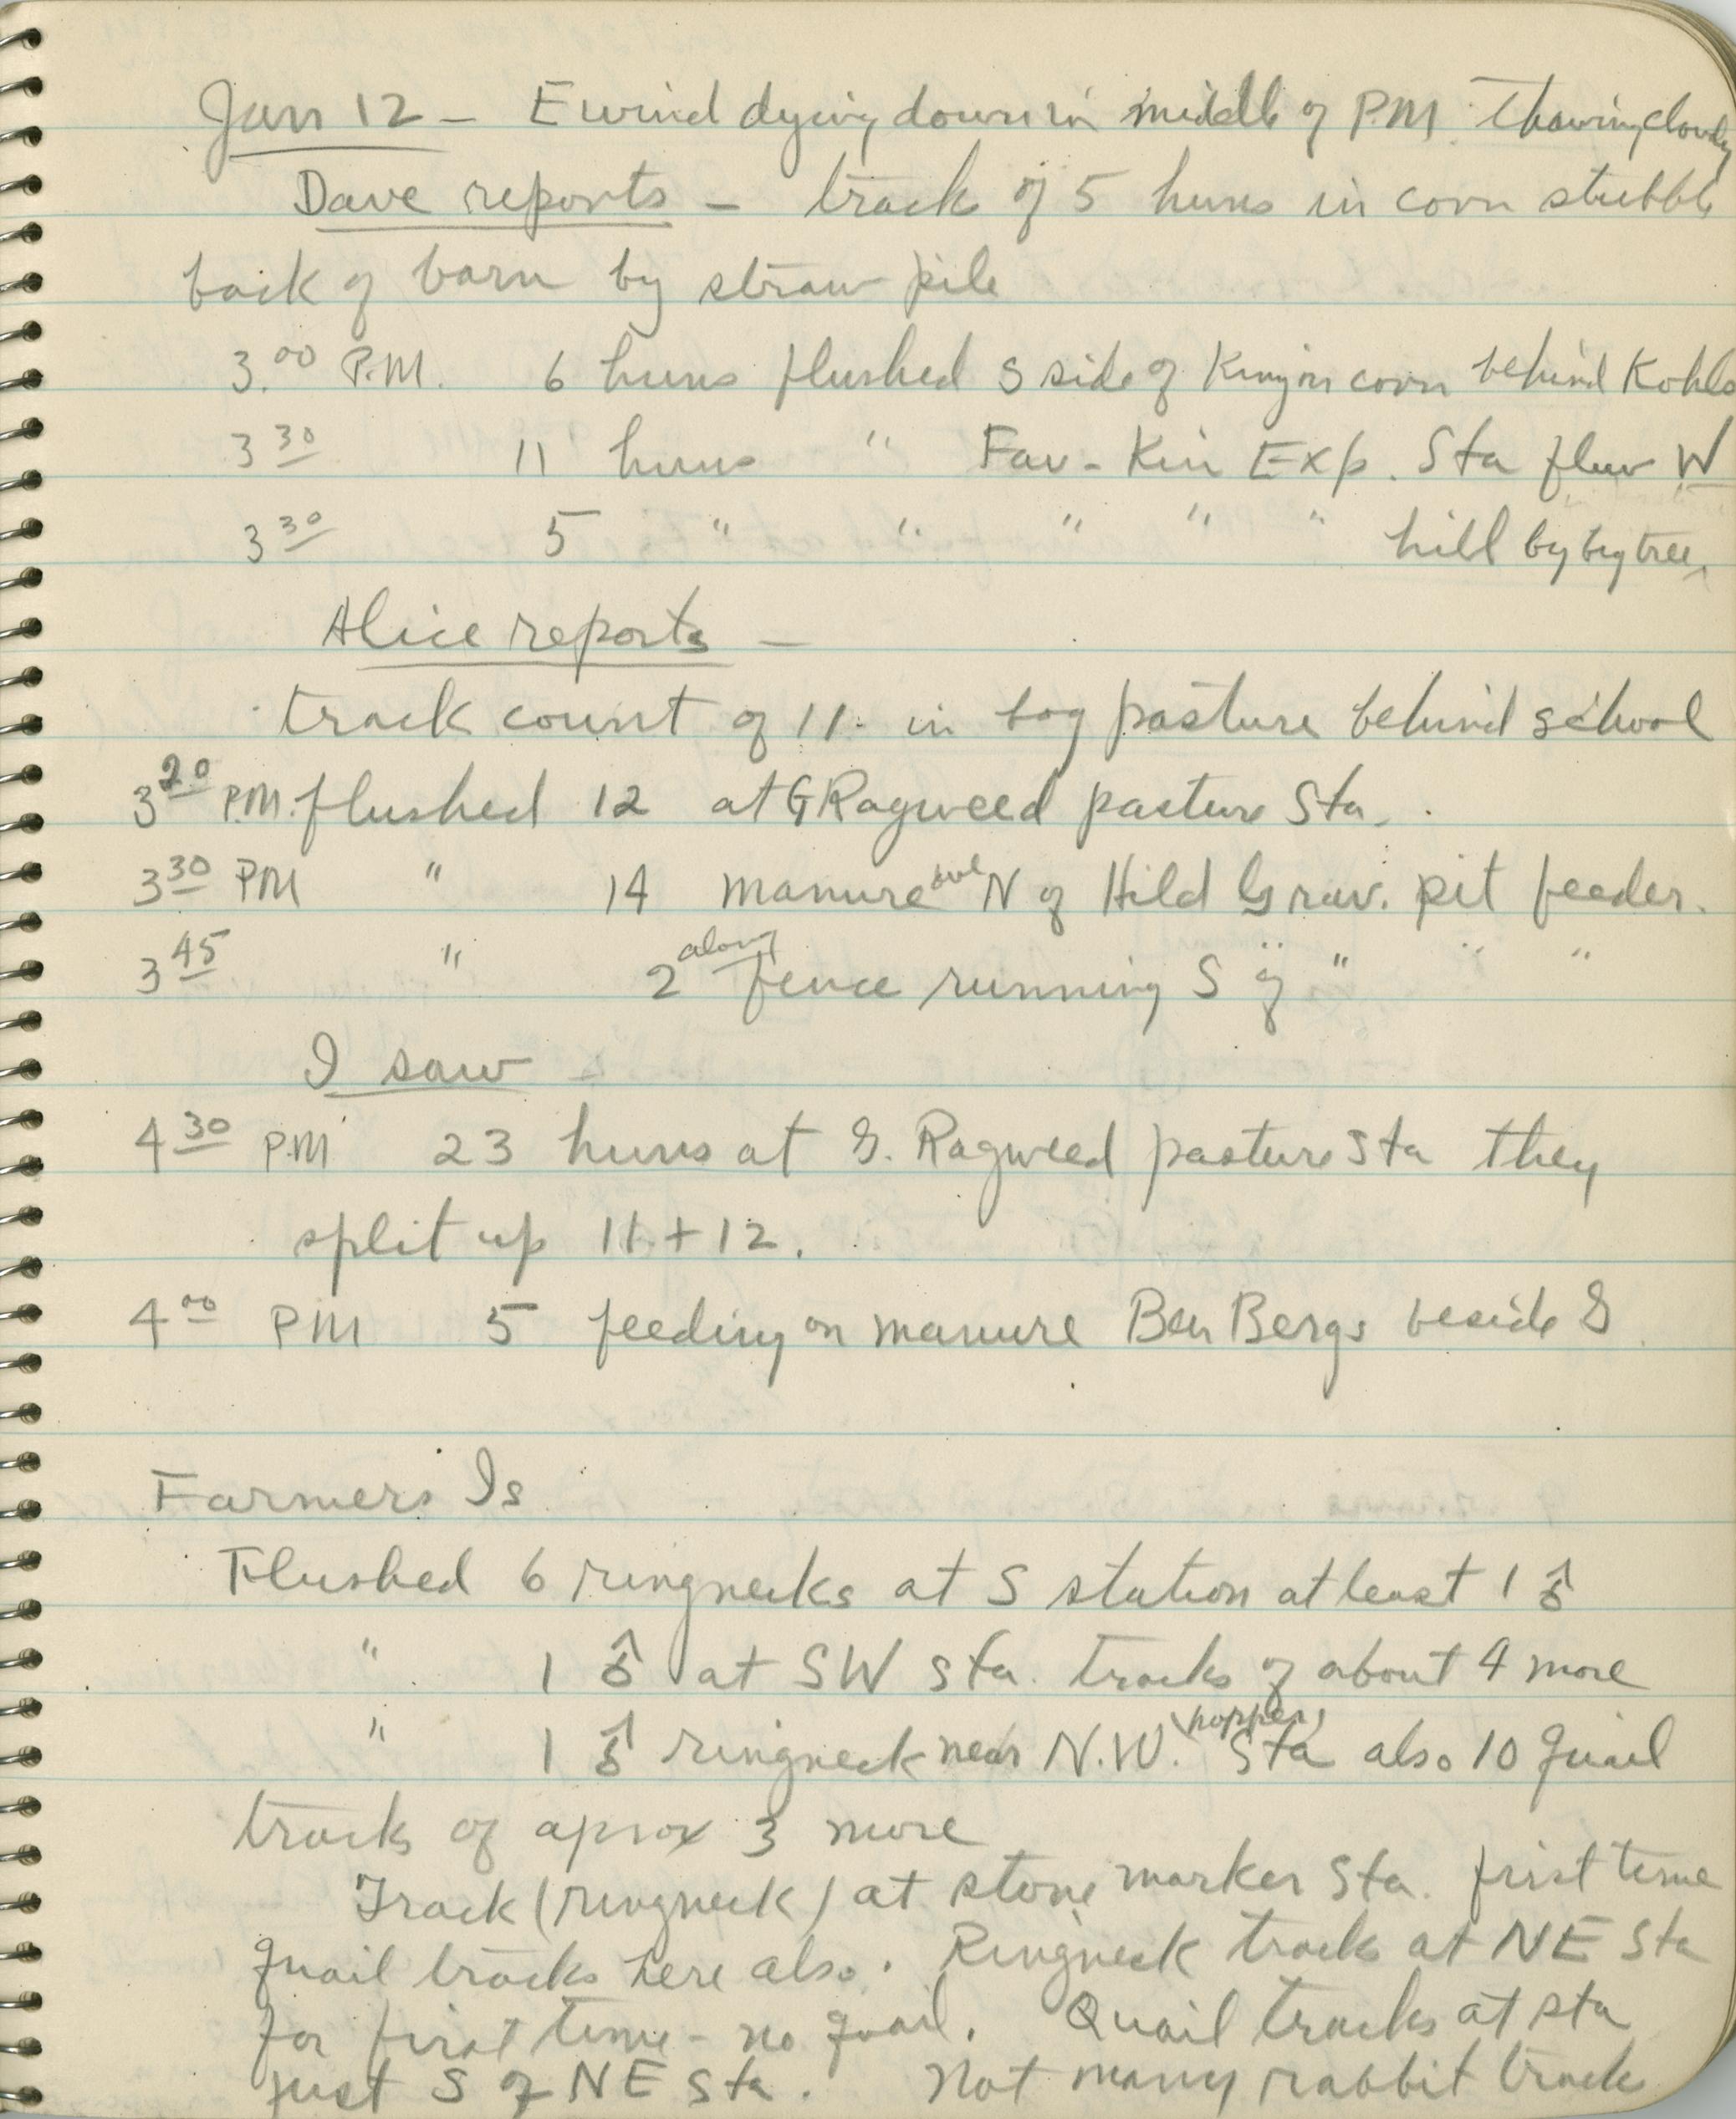 Jan 12 - E wind dying down in middle of P.M. Thawing cloudy
Dave reports - track of 5 huns in corn stubble
back of barn by straw pile
3.00 P.M. 6 huns flushed S side of in corn behind Kohls
3 30 11 huns " Fav - Kin Exp. Sta flew W
3 30 5 " " " " " hill by big tree
Alice reports -
track count of 11. in bog pasture behind school
3 20 P.M. flushed 12 at G Ragweed pasture Sta.
3 30 PM " 14 manure N of Hild Grav. pit feeder.
3 45 " 2 along fence running S of " " "
I saw -
4 30 PM 23 huns at G. Ragweed pasture Sta they
split up 11 + 12.
4 00 PM 5 feeding on manure Ben Bergs beside
Farmers Is
Flushed 6 ringnecks at S station at least 1 ♂
" 1 ♂ at SW Sta. tracks of about 4 more
" 1 ♂ ringneck near N.W. (hopper) Sta also 10 quail
track of aprox 3 more
Track (ringneck) at stone marker Sta. frist time
quail tracks here also. Ringneck track at NE Sta
for first time - no quail. Quail tracks at sta
just S of NE Sta. Not many rabbit track